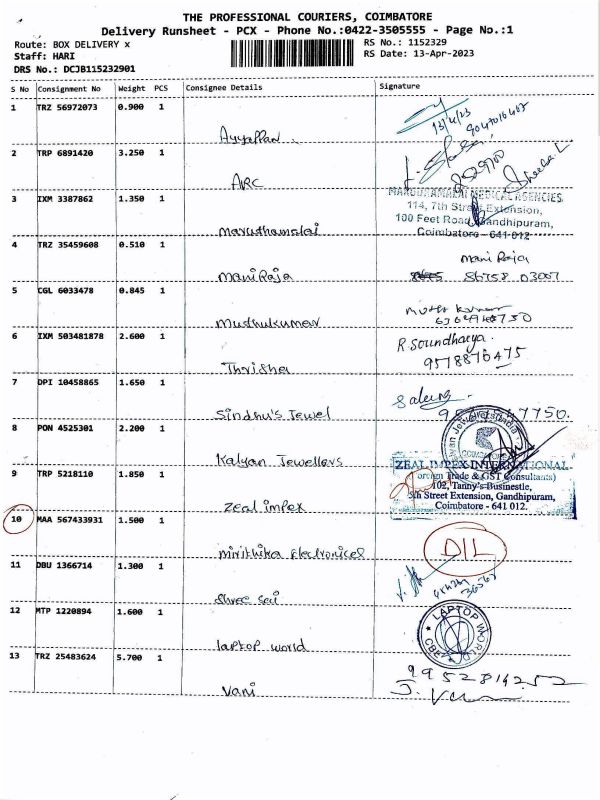 THE PROFESSIONAL COURIERS, COIMBATORE
Delivery Runsheet - PCX - Phone No.:0422-3505555 - Page No.:1
Route: BOX DELIVERY x
RS No.: 1152329
Staff: HARI
RS Date: 13-Apr-2023
DRS No.: DCJB115232901
S No Consignment No Weight PCS Consignee Details Signature
1 TRZ 56972073 0.900 1
13/4/23
Ayyappan
2 TRP 6891420 3.250 1
ARC
Sheeba.L
3 IXM 3387862 1.350 1
MARUDHAMALAI MEDICAL AGENCIES
114, 7th Street Extension,
100 Feet Road, Gandhipuram,
Coimbatore - 641 012
Maruthamalai
4 TRZ 35459608 0.510 1
Mani Raja
ManiRaja
86758 03007
5 CGL 6033478 0.845 1
Muthukumar
6 IXM 503481878 2.600 1
R Soundharya.
9578876475
Thrisha
7 DPI 10458865 1.650 1
Sindhu's Jewel
8 PON 4525301 2.200 1
Kalyan Jewellers
ZEAL IMPEX INTERNATIONAL
(Foreign Trade & GST Consultants)
9 TRP 5218110 1.850 1
102, Tanny's Businestle,
5th Street Extension, Gandhipuram,
Coimbatore - 641 012.
Zeal impex
10 MAA 567433931 1.500 1
Mirithika Electronices
D/L
11 DBU 1366714 1.300 1
Shree Sai
12 MTP 1220894 1.600 1
LAPTOP WORLD
CBE
laptop world
13 TRZ 25483624 5.700 1
9952814252
Vani